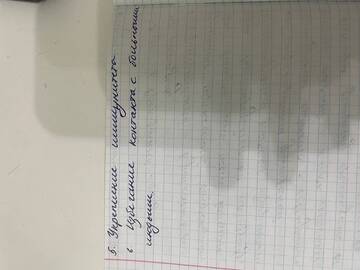 5. Укрепление иммунитета
6 Избегание контакта с больными
людьми.